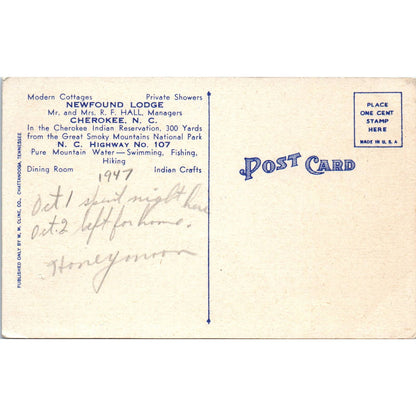 Modern Cottages Private Showers
NEWFOUND LODGE
Mr. and Mrs. R. F. HALL, Managers
CHEROKEE, N. C.
In the Cherokee Indian Reservation, 300 Yards
from the Great Smoky Mountains National Park
N. C. HIGHWAY No. 107
Pure Mountain Water — Swimming, Fishing,
Hiking
Dining Room Indian Crafts
1947
Oct 1 spent night here
Oct. 2 left for home.
Honeymoon
PUBLISHED ONLY BY W. M. CLINE CO., CHATTANOOGA, TENNESSEE
POST CARD
PLACE
ONE CENT
STAMP
HERE
MADE IN U. S. A